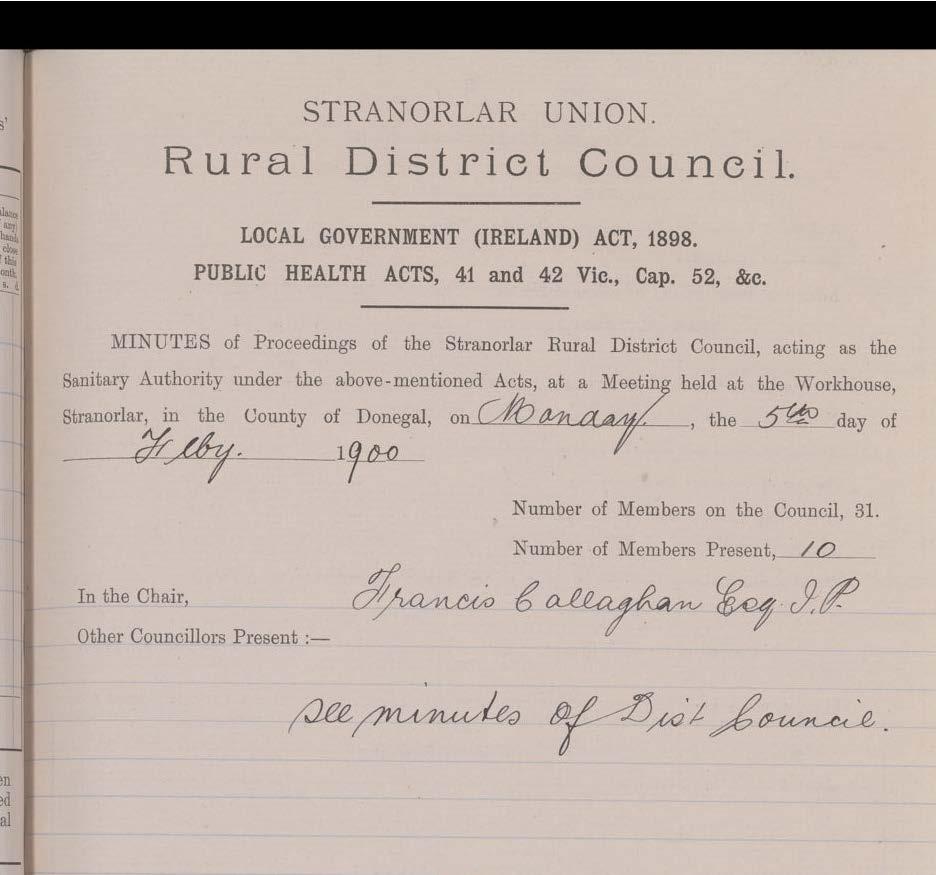 STRANORLAR UNION.
Rural District Council.
LOCAL GOVERNMENT (IRELAND) ACT, 1898.
PUBLIC HEALTH ACTS, 41 and 42 Vic., Cap. 52, &c.
MINUTES of Proceedings of the Stranorlar Rural District Council, acting as the
Sanitary Authority under the above-mentioned Acts, at a Meeting held at the Workhouse,
Stranorlar, in the County of Donegal, on Monday, the 5th day of
Feby. 1900
Number of Members on the Council, 31.
Number of Members Present, 10
In the Chair, Francis Callaghan Esq. J.P.
Other Councillors Present :—
See minutes of Dist Council.
s'
alance
any)
hands
close
this
onth.
s. d.
en
ed
al